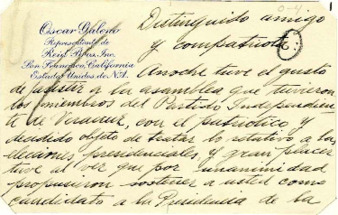 Oscar Galeno
Representante de
Reid Bros. Inc.
San Francisco, California
Estados Unidos de N.A.
Distinguido amigo
y compatriota:
Anoche tuve el gusto
de asistir a la asamblea que tuvieron
los miembros del Partido Independien
te de Veracruz, con el patriótico y
decidido objeto de tratar lo relativo a las
elecciones presidenciales y gran placer
tuve al ver que por unanimidad
propusieron sostener a usted como
candidato a la Presidencia de la